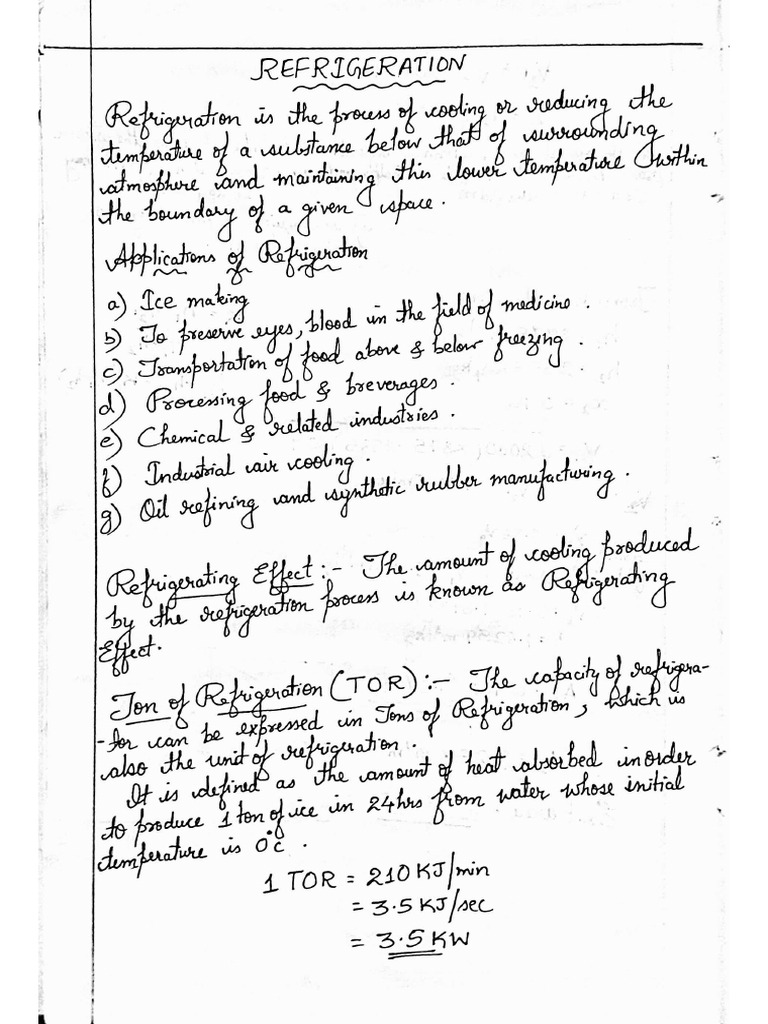 REFRIGERATION
Refrigeration is the process of cooling or reducing the
temperature of a substance below that of surrounding
atmosphere and maintaining this lower temperature within
the boundary of a given space.
Applications of Refrigeration
a) Ice making
b) To preserve eyes, blood in the field of medicine.
c) Transportation of food above & below freezing.
d) Processing food & breverages.
e) Chemical & related industries.
f) Industrial air cooling.
g) Oil refining and synthetic rubber manufacturing.
Refrigerating Effect:- The amount of cooling produced
by the refrigeration process is known as Refrigerating
Effect.
Ton of Refrigeration (TOR):- The capacity of refrigera-
-tor can be expressed in Tons of Refrigeration, which is
also the unit of refrigeration.
It is defined as the amount of heat absorbed inorder
to produce 1 ton of ice in 24hrs from water whose initial
temperature is 0°c.
1 TOR = 210 KJ/min
= 3.5 KJ/sec
= 3.5 KW